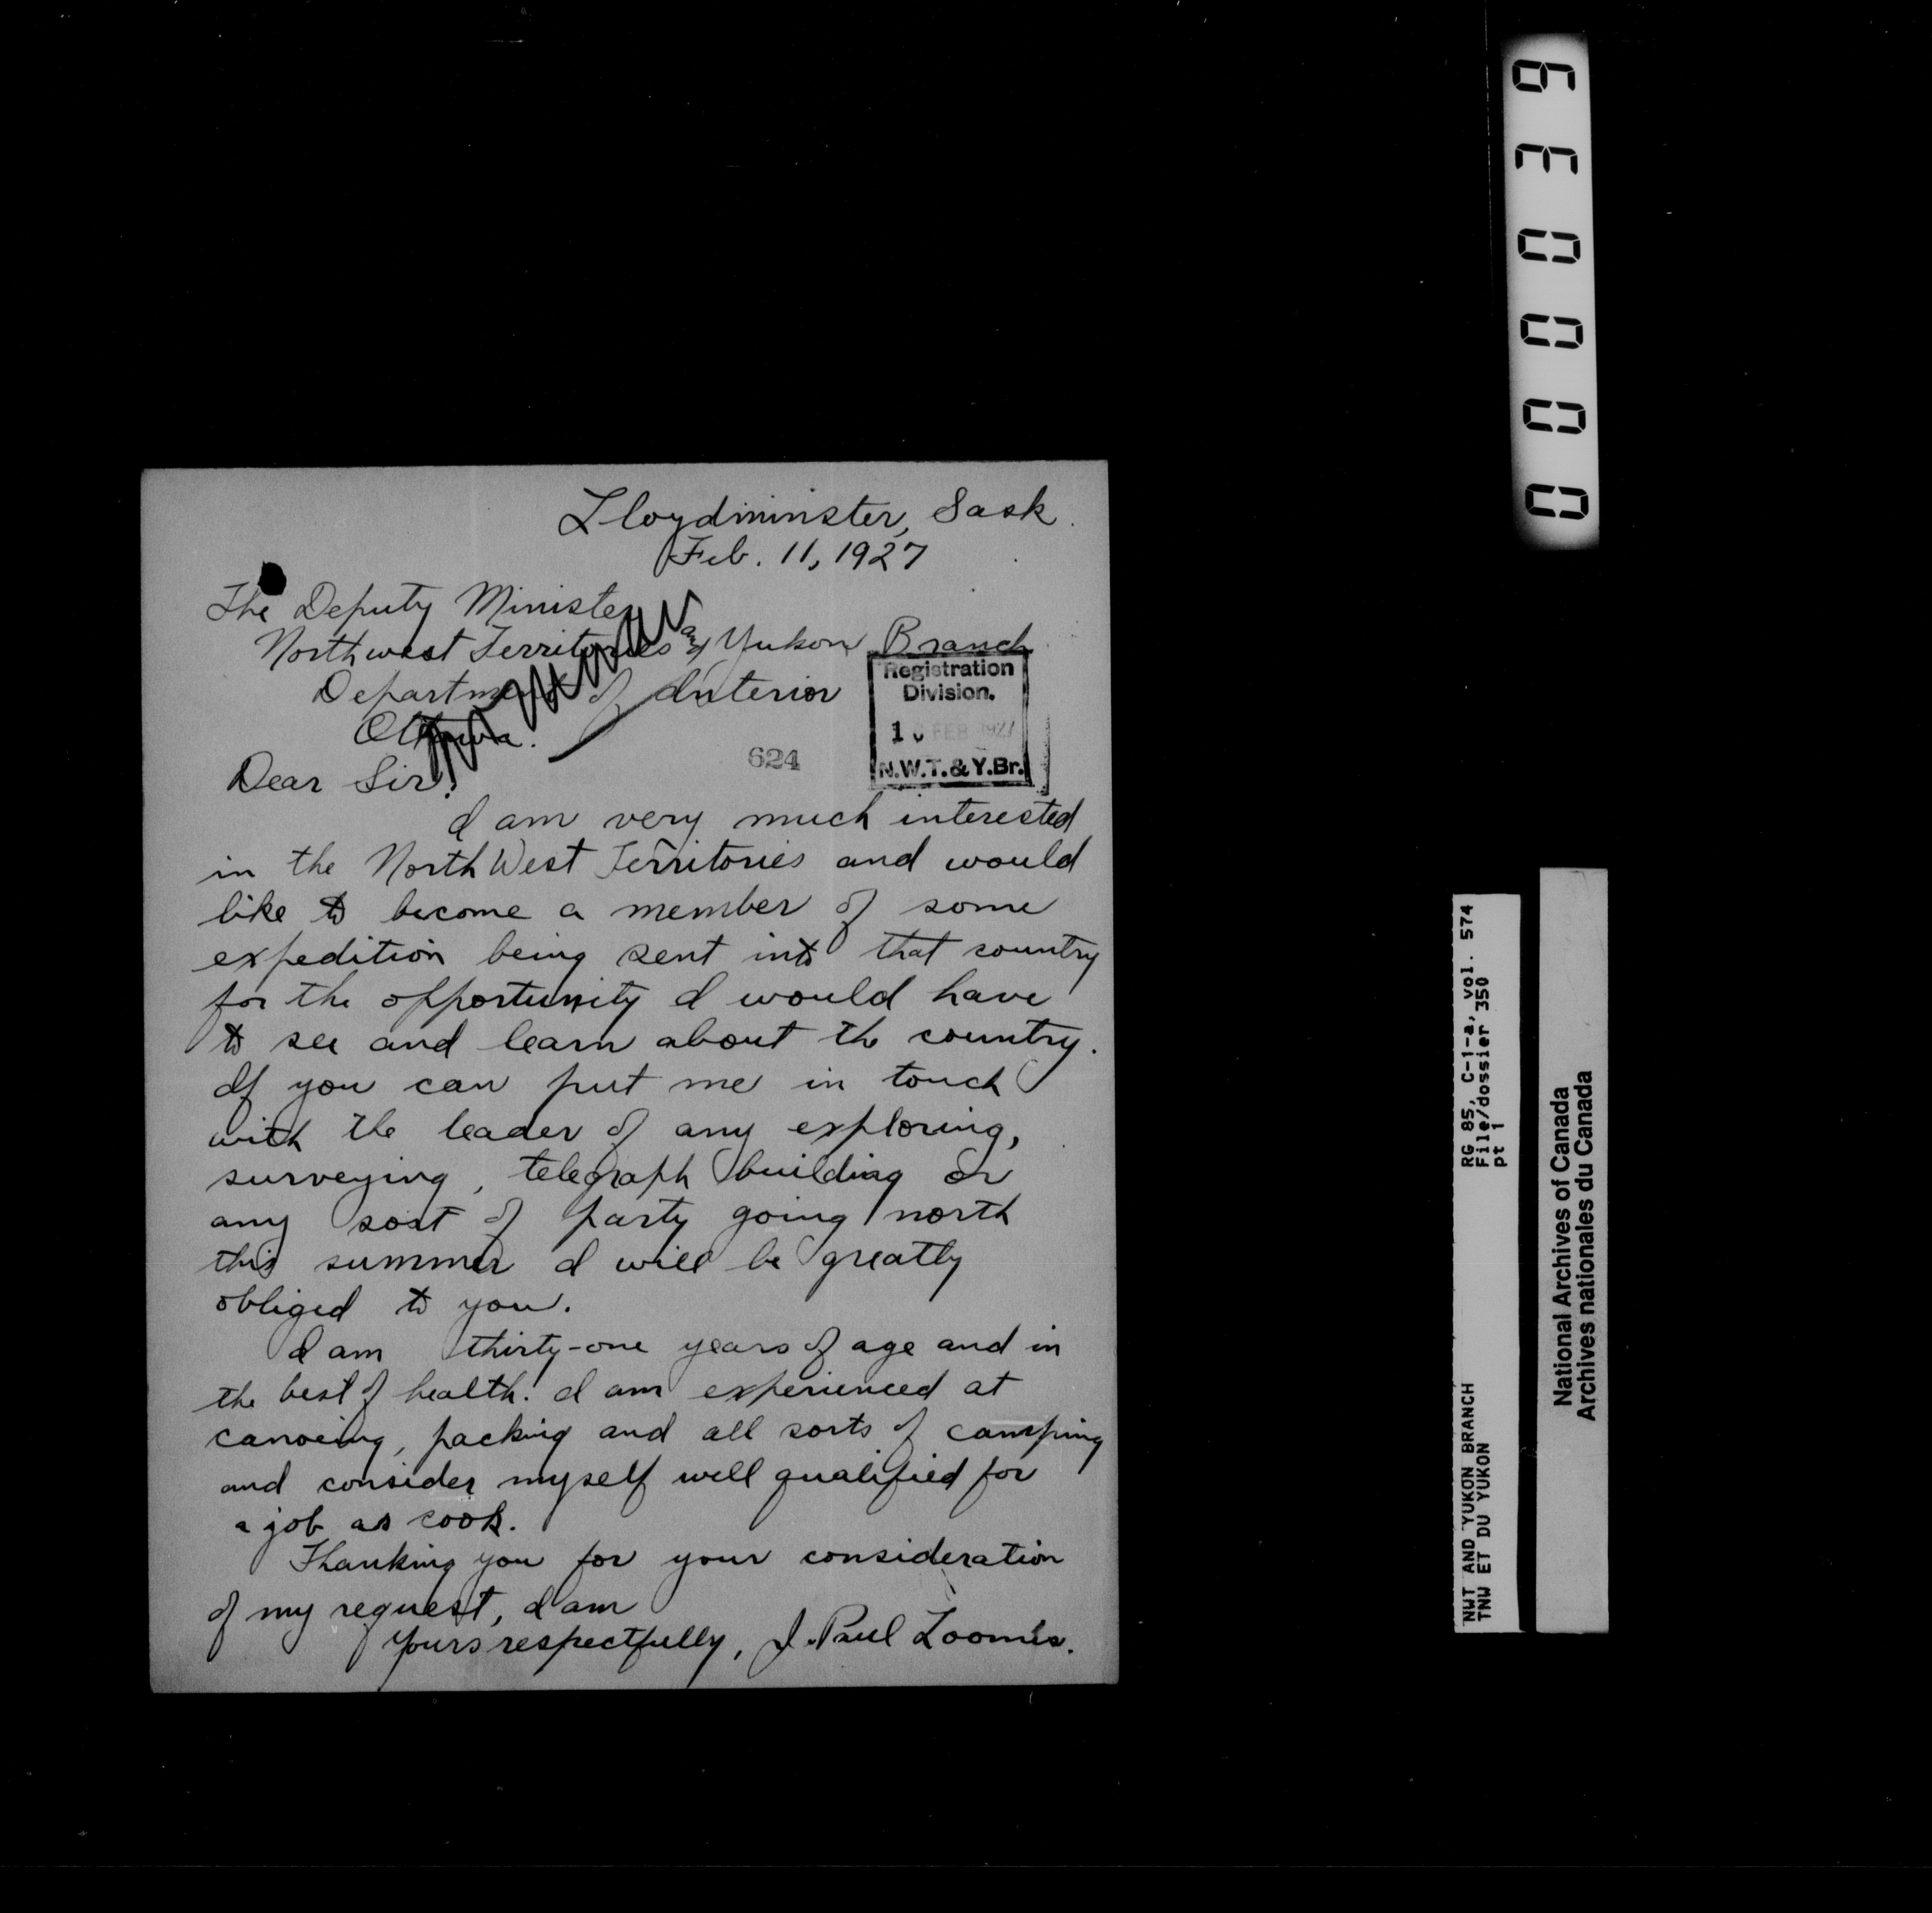 Lloydminister, Sask.
Feb. 11, 1927
The Deputy Minister
Northwest Territories and Yukon Branch
Department of Interior
Ottawa.
Registration
Division.
FEB 1927
N.W.T. & Y. Br.
624
Dear Sir:
I am very much interested
in the North West Territories and would
like to become a member of some
expedition being sent into that country
for the opportunity I would have
to see and learn about the country.
If you can put me in touch
with the leader of any exploring,
surveying, telegraph building or
any sort of party going north
this summer I will be greatly
obliged to you.
I am thirty-one years of age and in
the best of health. I am experienced at
canoeing, packing and all sorts of camping
and consider myself well qualified for
a job as cook.
Thanking you for your consideration
of my request, I am
Yours respectfully, J. Paul Loomis.
000039
RG 85, C-1-a, vol. 574
File/dossier 350
pt 1
NWT AND YUKON BRANCH
TNW ET DU YUKON
National Archives of Canada
Archives nationales du Canada